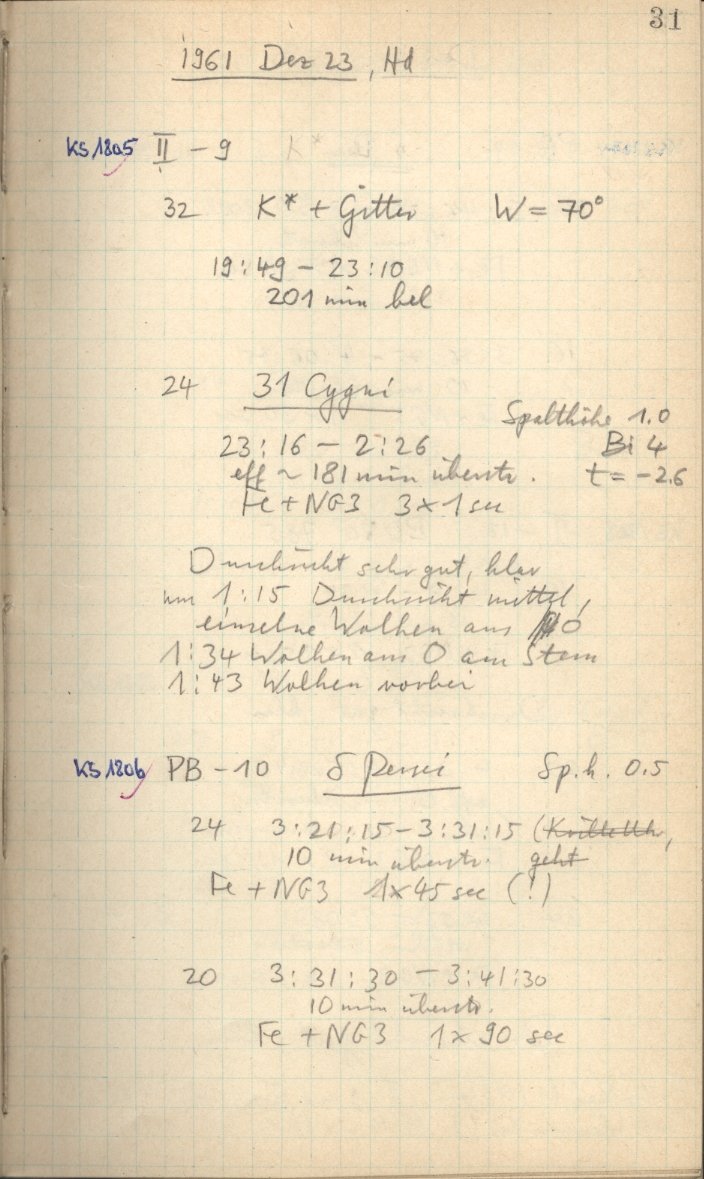 31
1961 Dez 23, Hd
KS 1805 II - 9
32 K* + Gitter W = 70°
19:49 - 23:10
201 min bel
24 31 Cygni
Spalthöhe 1.0
23:16 - 2:26 Bi 4
eff ~ 181 min überstr. t = -2.6
Fe + NG3 3 x 1 sec
Durchsicht sehr gut, klar
um 1:15 Durchsicht mittel,
einzelne Wolken aus O
1:34 Wolken aus O am Stern
1:43 Wolken vorbei
KS 1806 PB - 10 δ Persei Sp.h. 0.5
24 3:21:15 - 3:31:15 (
10 min überstr. geht
Fe + NG3 1x45 sec (!)
20 3:31:30 - 3:41:30
10 min überstr.
Fe + NG3 1x90 sec